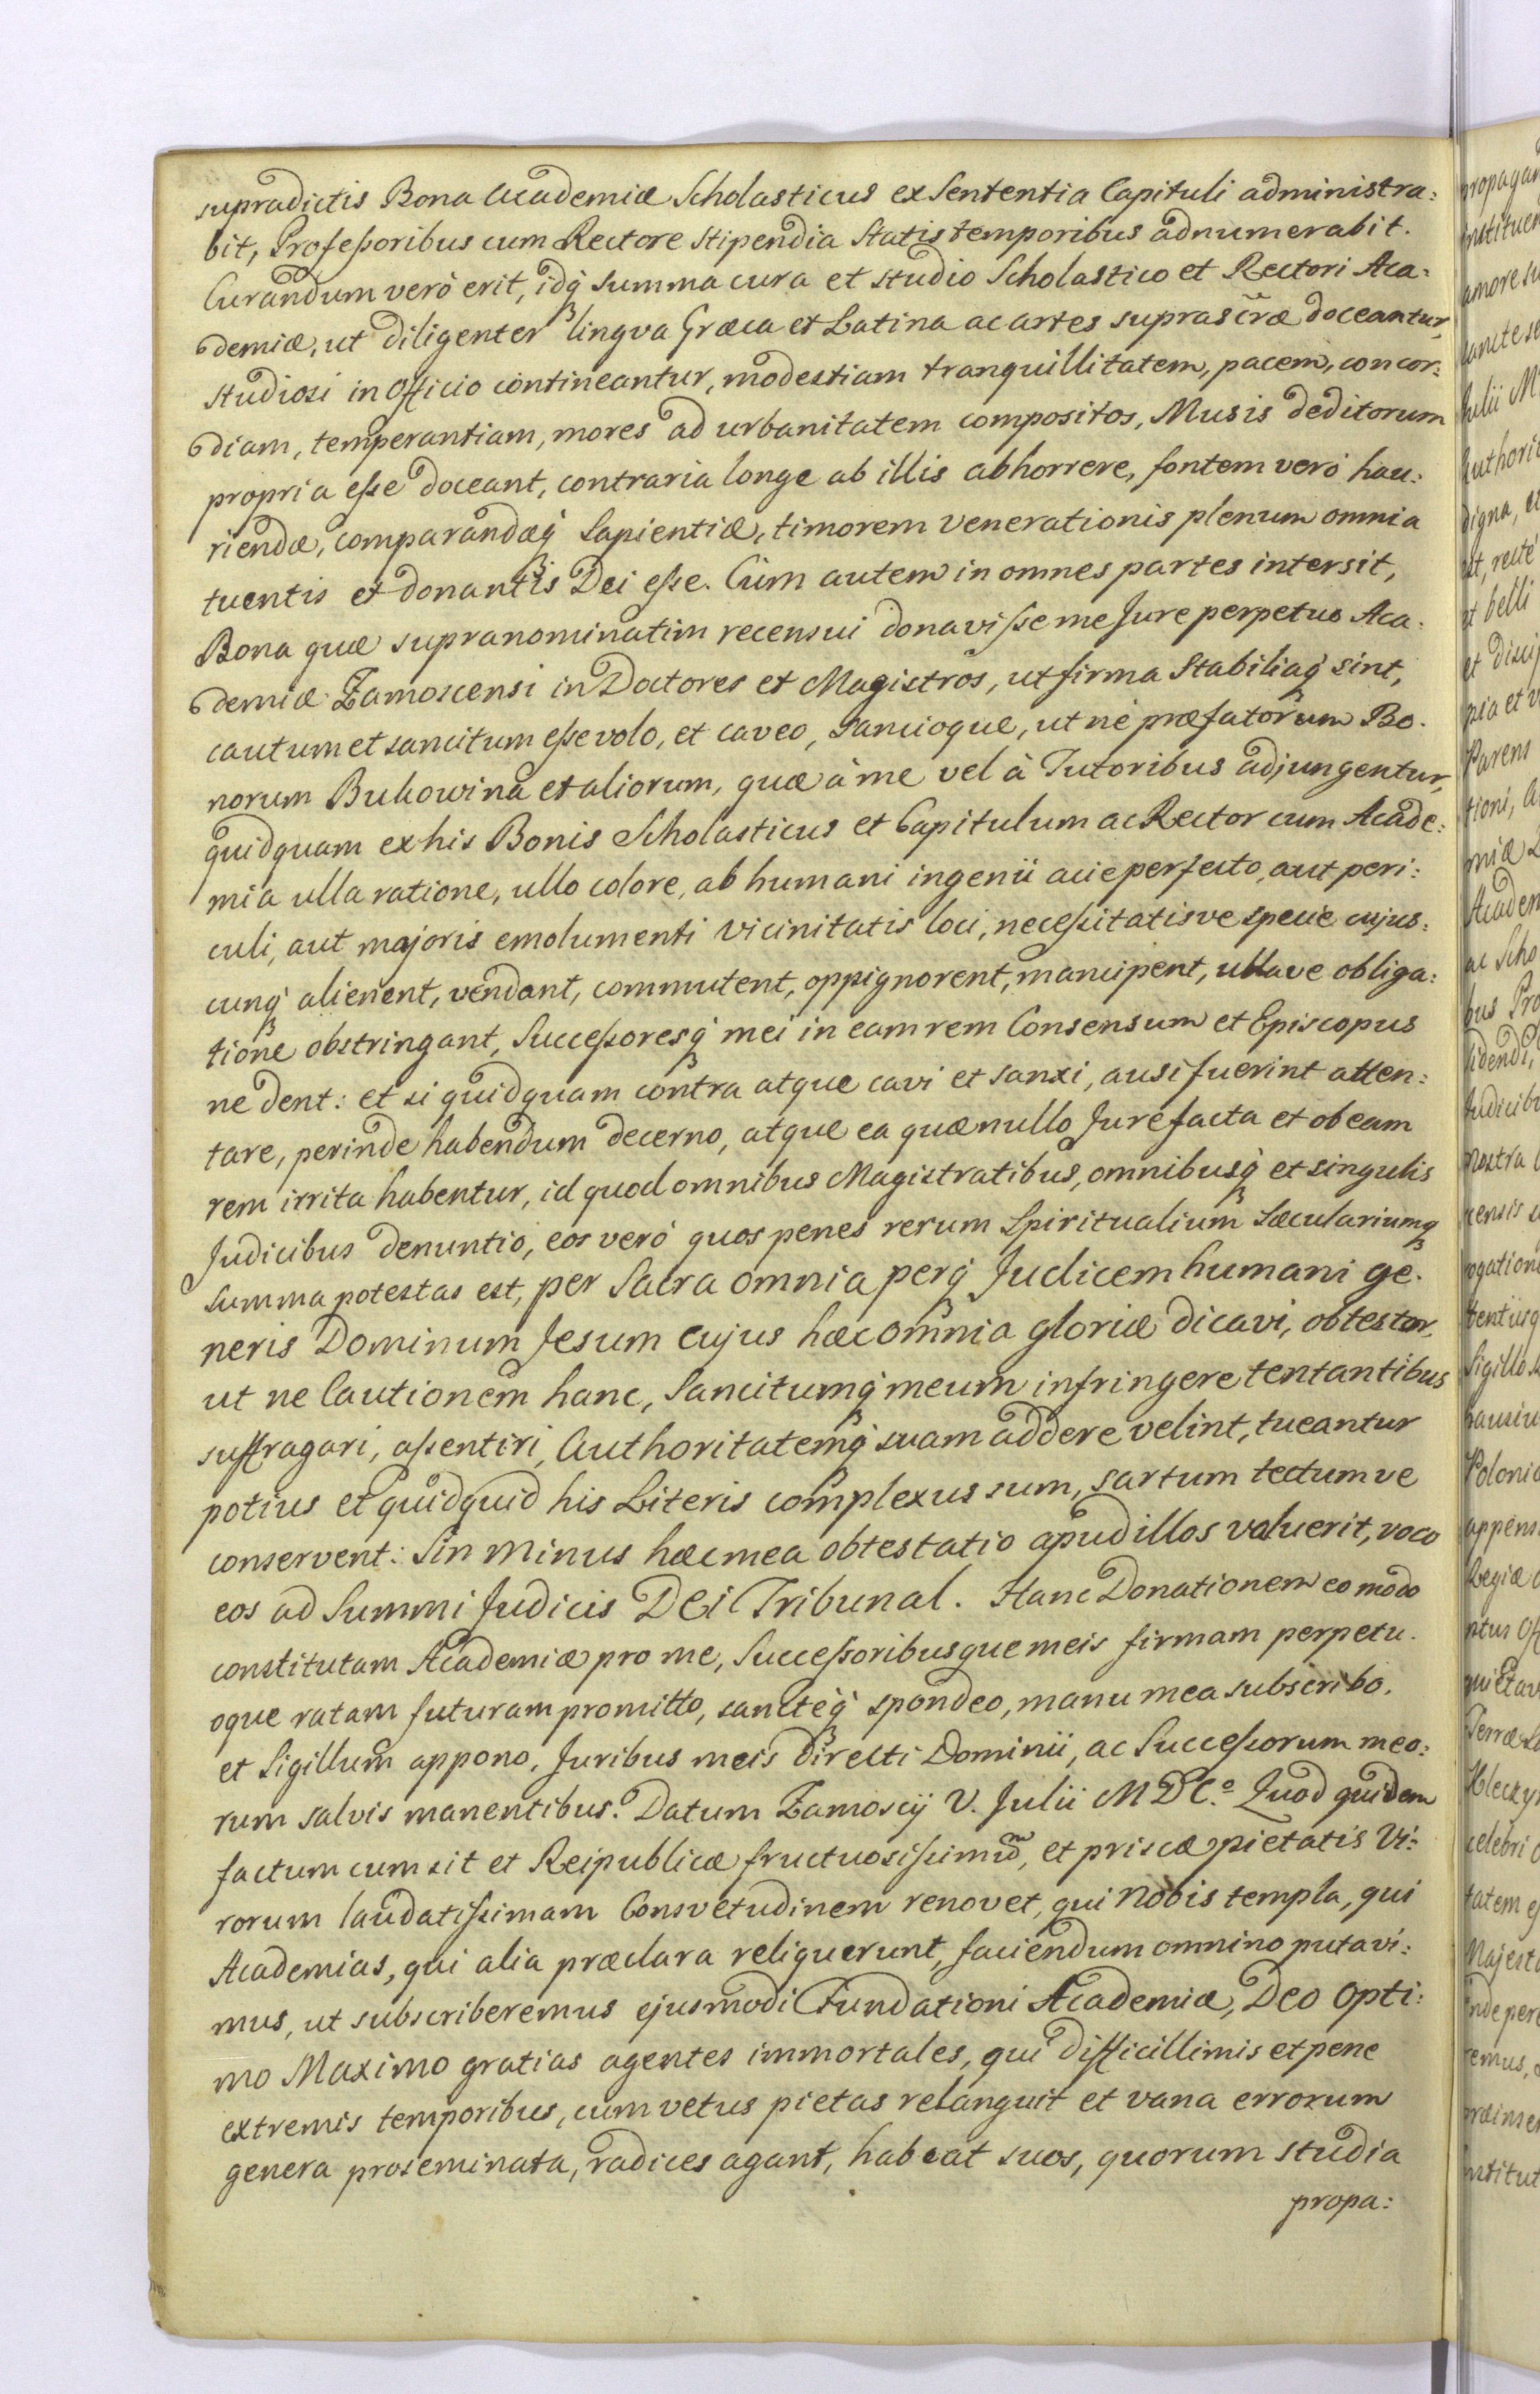 supradictis Bona Academiæ Scholasticus ex Sententia Capituli administra:
bit, Profeßoribus cum Rectore Stipendia Statis temporibus adnumerabit.
Curandum verò erit, idq́ꝫ summa cura et studio Scholastico et Rectori Aca:
demiæ, ut diligenter lingva Græca et Latina ac artes suprascr̃æ doceantur,
studiosi in Officio contineantur, modestiam tranquillitatem, pacem, concor:
diam, temperantiam, mores ad urbanitatem compositos, Musis deditorum
propria eße doceant, contraria longe ab illis abhorrere, fontem verò hau:
riendæ, comparandæq́ꝫ Sapientiæ, timorem venerationis plenum omnia
tuentis et donantis Dei eße. Cùm autem in omnes partes intersit,
Bona quæ supranominatim recensui donaviße me Jure perpetuo Aca:
demiæ Zamoscensi in Doctores et Magistros, ut firma Stabiliaq́ꝫ sint,
cautum et sancitum eße volo, et caveo, sancioque, ut nè præfatorum Bo.
norum Bukowina et aliorum, quæ à me vel à Tutoribus adjungentur,
quidquam ex his Bonis Scholasticus et Capitulum ac Rector cum Acade:
mia ulla ratione, ullo colore, ab humani ingenii acie perfecto, aut peri:
culi, aut majoris emolumenti vicinitatis loci, neceßitatisve specie cujus:
cunq́ꝫ alienent, vendant, commutent, oppignorent, mancipent, ullave obliga:
tione obstringant, Succeßoresq́ꝫ mei in eam rem Consensum et Episcopus
ne dent: et si quidquam contra atque cavi et sanxi, ausi fuerint atten:
tare, perinde habendum decerno, atque ea quæ nullo Jure facta et ob eam
rem irrita habentur, id quod omnibus Magistratibus, omnibusq́ꝫ et singulis
Judicibus denuntio, eos verò quos penes rerum Spiritualium Sæculariumqꝫ
summa potestas est, per Sacra omnia perq́ꝫ Judicem humani ge.
neris Dominum Jesum cujus hæc omnia gloriæ dicavi, obtestor,
ut ne Cautionem hanc, Sancitumq́ꝫ meum infringere tentantibus
suffragari, aßentiri, Authoritatemq́ꝫ suam addere velint, tueantur
potius et quidquid his Literis complexus sum, sartum tectumve
conservent: Sin minus hæc mea obtestatio apud illos valuerit, voco
eos ad Summi Judicis DEI Tribunal. Hanc Donationem eo modo
constitutam Academiæ pro me, Succeßoribusque meis firmam perpetu.
oque ratam futuram promitto, sanctèq́ꝫ spondeo, manu mea subscribo.
et Sigillum appono, Juribus meis directi Dominii, ac Succeßorum meo:
rum salvis manentibus. Datum Zamoscij V. Julii MDC.º Quod quidem
factum cum sit et Reipublicæ fructuosißimũ, et priscæ pietatis Vi:
rorum laudatißimam Consvetudinem renovet, qui nobis templa, qui
Academias, qui alia præclara reliquerunt, faciendum omnino putavi:
mus, ut subscriberemus ejusmodi Fundationi Academiæ, Deo Opti:
mo Maximo gratias agentes immortales, qui difficillimis et pene
extremis temporibus, cum vetus pietas relanguit et vana errorum
genera proseminata, radices agant, habeat suos, quorum studia
propa: